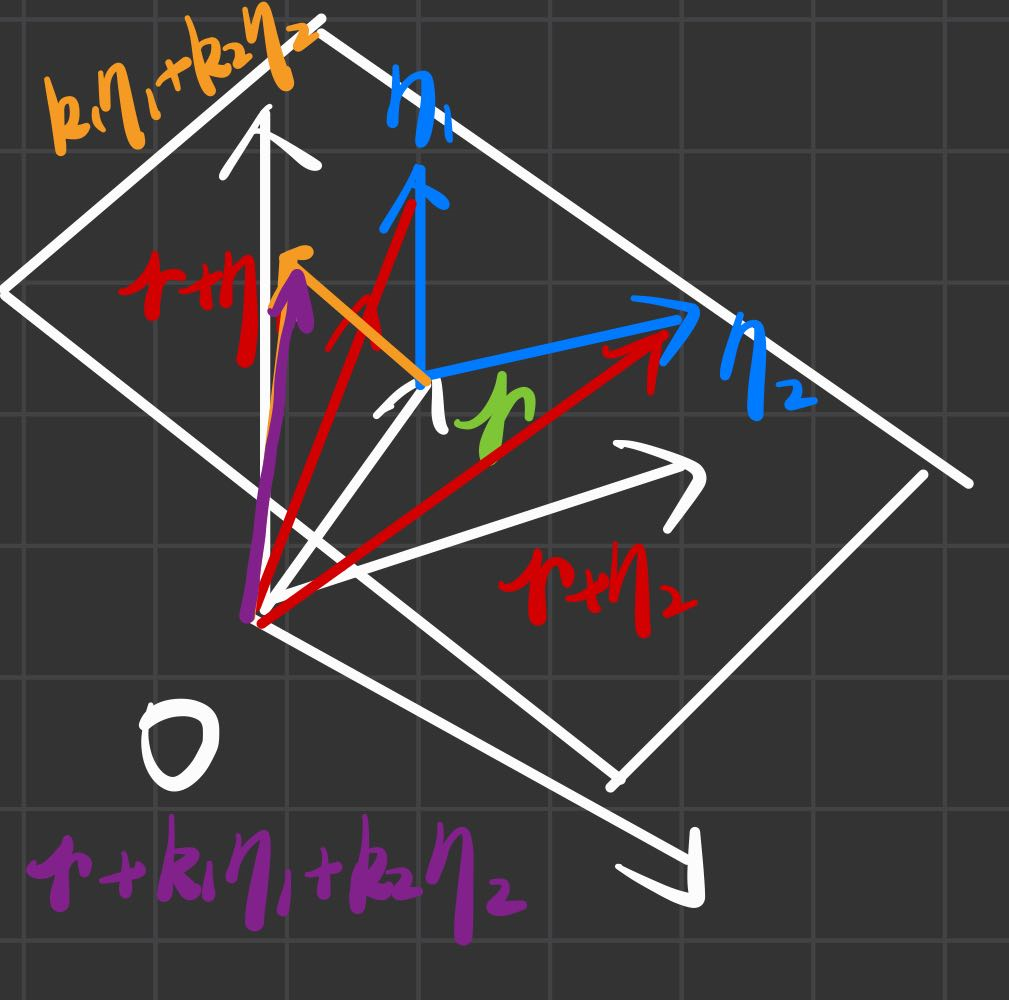 k₁η₁+k₂η₂
η₁
r+η
η₂
r
r+η₂
O
r+k₁η₁+k₂η₂